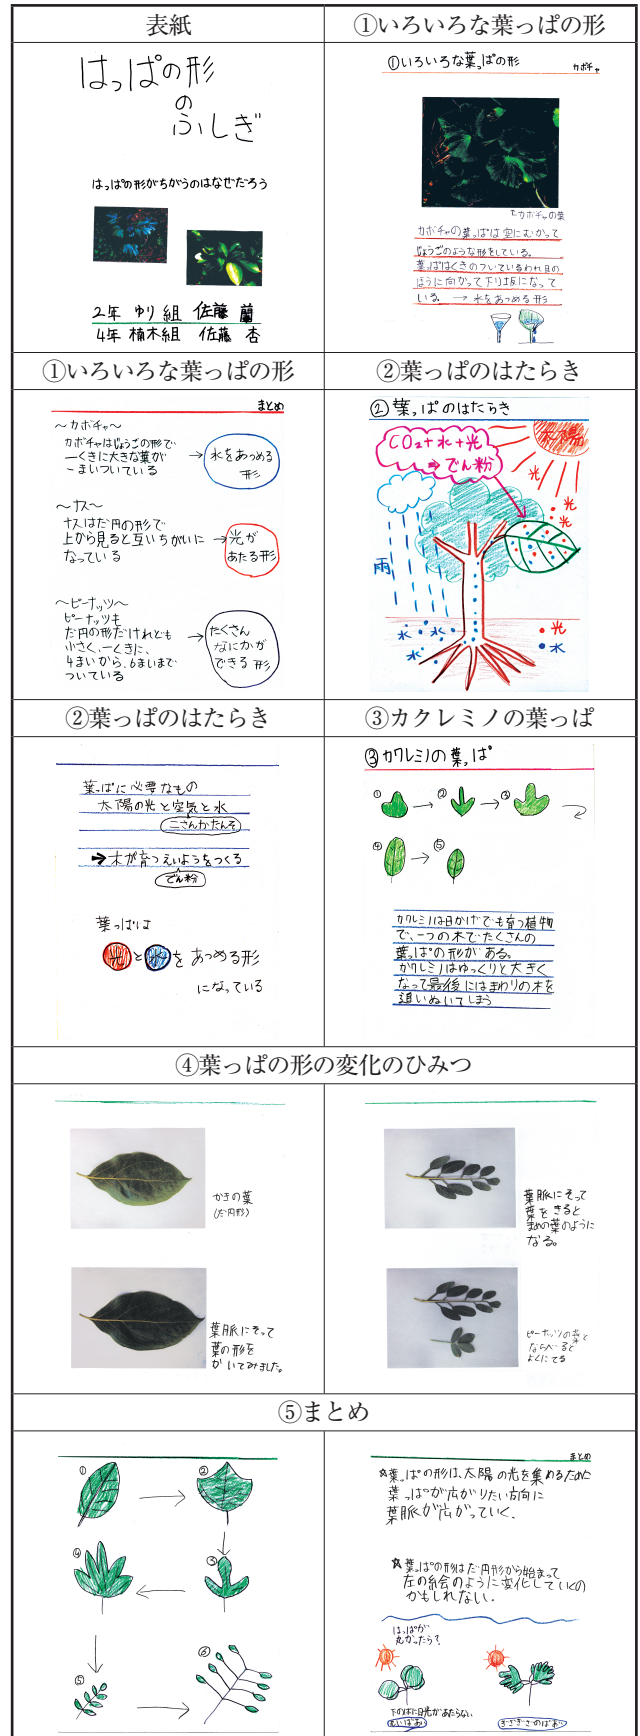 表紙
はっぱの形
の
ふしぎ
はっぱの形がちがうのはなぜだろう
2年 ゆり組 佐藤 蘭
4年 楠木組 佐藤 杏
①いろいろな葉っぱの形
①いろいろな葉っぱの形
カボチャ
カボチャの葉
カボチャの葉っぱは空にむかって
じょうごのような形をしている。
葉っぱはくきのついているわれ目の
ほうに向かって下り坂になって
いる。 → 水をあつめる形
①いろいろな葉っぱの形
まとめ
～カボチャ～
カボチャはじょうごの形で
一くきに大きな葉が
一まいついている
→ 水をあつめる
形
～ナス～
ナスはだ円の形で
上から見ると互いちがいに
なっている
→ 光が
あたる形
～ピーナッツ～
ピーナッツも
だ円の形だけれども
小さく、一くきに、
4まいから、6まいまで
ついている
→ たくさん
なにかが
できる形
②葉っぱのはたらき
②葉っぱのはたらき
太陽
CO₂+水+光
⇒でん粉
光
光
光
雨
水
水
水
水
水
光
水
②葉っぱのはたらき
葉っぱに必要なもの
太陽の光と空気と水
二さんかたんそ
→木が育つえいようをつくる
でん粉
葉っぱは
光と水をあつめる形
になっている
③カクレミノの葉っぱ
③カクレミノの葉っぱ
① → ② → ③
④ → ⑤
カクレミノは日かげでも育つ植物
で、一つの木でたくさんの
葉っぱの形がある。
カクレミノはゆっくりと大きく
なって最後にはまわりの木を
追いぬいてしまう
④葉っぱの形の変化のひみつ
かきの葉
(だ円形)
葉脈にそって
葉の形を
かいてみました。
葉脈にそって
葉をきると
まめの葉のように
なる。
ピーナッツの葉と
ならべると
よくにてる
⑤まとめ
①
②
③
④
⑤
⑥
まとめ
☆葉っぱの形は、太陽の光を集めるために
葉っぱが広がりたい方向に
葉脈が広がっていく。
☆葉っぱの形はだ円形から始まって
左の絵のように変化していくの
かもしれない。
はっぱが
丸かったら?
下のはに日光があたらない
ぎざぎざのばあい